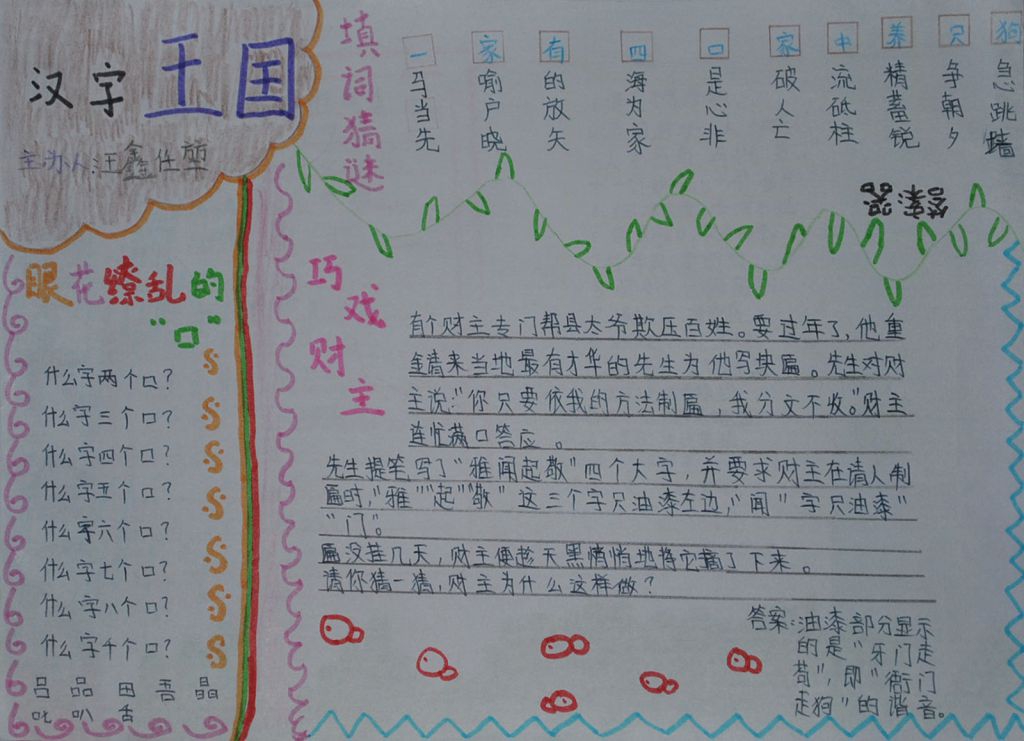 汉字王国
主办人:汪鑫仕堃
眼花缭乱的
"口"
什么字两个口?
什么字三个口?
什么字四个口?
什么字五个口?
什么字六个口?
什么字七个口?
什么字八个口?
什么字千个口?
吕 品 田 吾 晶
叱 叭 舌
填词猜谜
一马当先
家喻户晓
有的放矢
四海为家
口是心非
家破人亡
中流砥柱
养精蓄锐
只争朝夕
狗急跳墙
答案:器
巧戏财主
有个财主专门帮县太爷欺压百姓。要过年了,他重
金请来当地最有才华的先生为他写块匾。先生对财
主说:"你只要依我的方法制匾,我分文不收。"财主
连忙满口答应。
先生提笔写了"雅闻起敬"四个大字,并要求财主在请人制
匾时,"雅""起""敬"这三个字只油漆左边,"闻"字只油漆"
"门"。
匾没挂几天,财主便趁天黑悄悄地将它摘了下来。
请你猜一猜,财主为什么这样做?
答案:油漆部分显示
的是"牙门走
苟",即"衙门
走狗"的谐音。